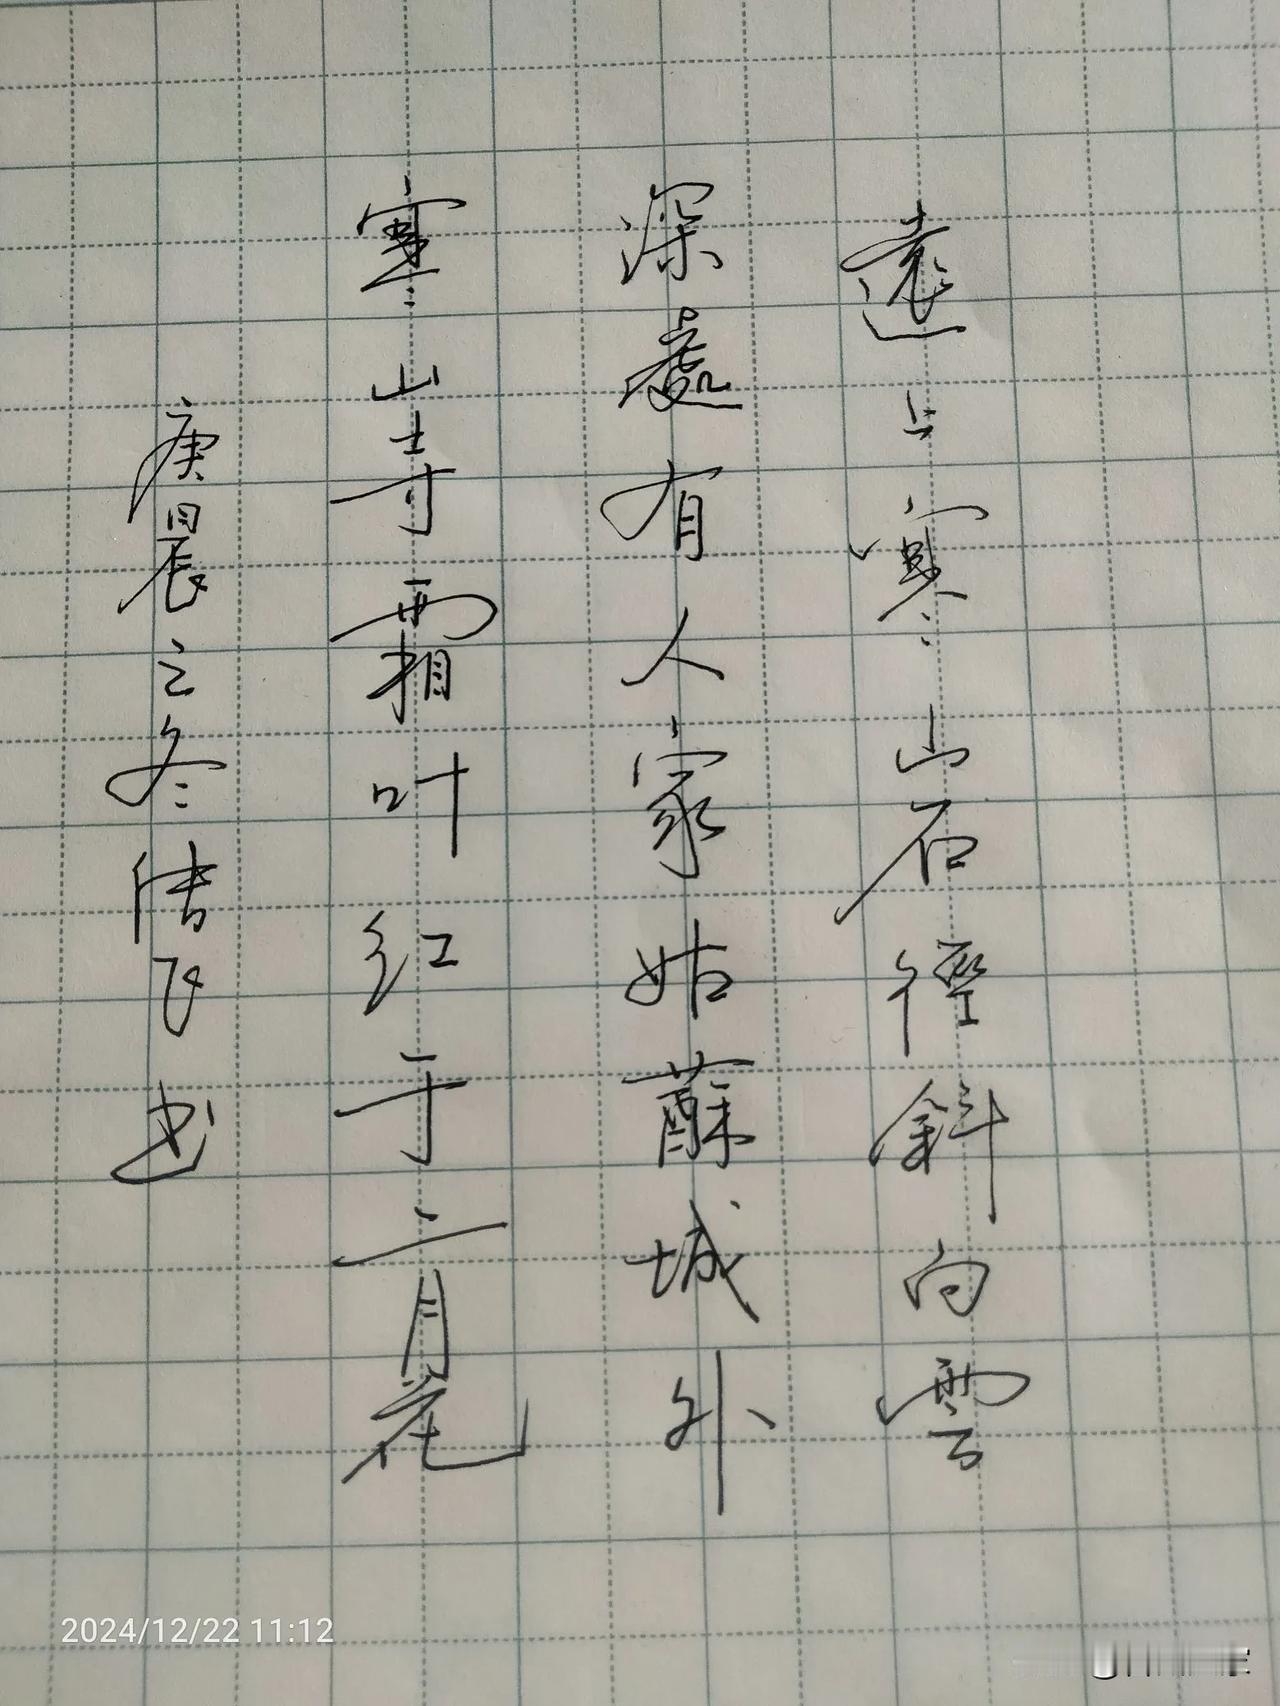 遠上寒山石徑斜向雲
深處有人家姑蘇城外
寒山寺霜叶红于二月花
庚晨之冬 书
2024/12/22 11:12